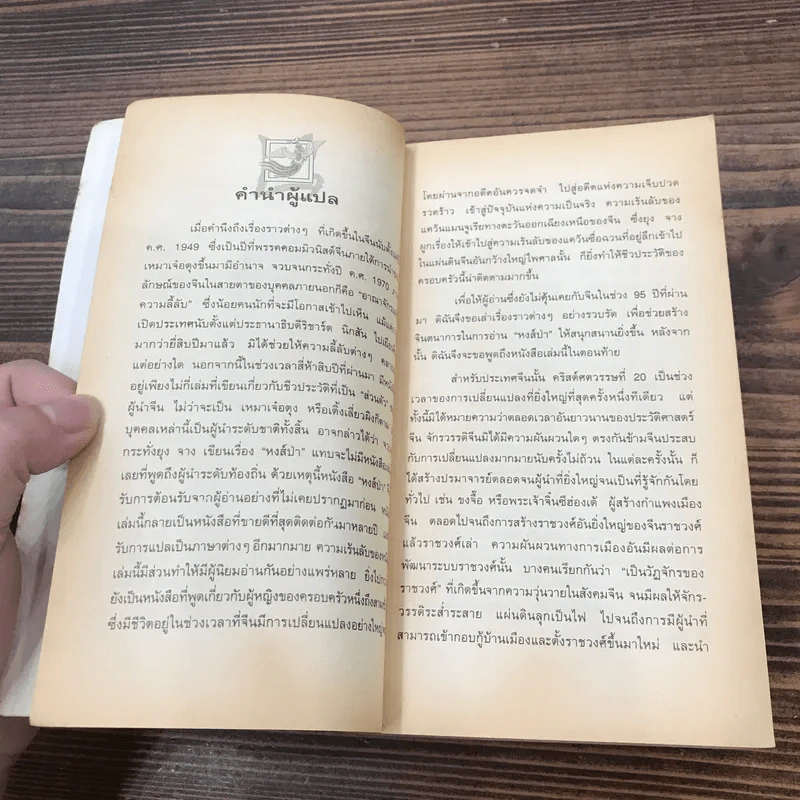 คำนำผู้แปล
เมื่อคำนึงถึงเรื่องราวต่างๆ ที่เกิดขึ้นในจีนนับตั้งแต่
ค.ศ. 1949 ซึ่งเป็นปีที่พรรคคอมมิวนิสต์จีนภายใต้การนำ
เหมาเจ๋อตุงขึ้นมามีอำนาจ จวบจนกระทั่งปี ค.ศ. 1970
ลักษณ์ของจีนในสายตาของบุคคลภายนอกก็คือ "อาณาจักร
ความลี้ลับ" ซึ่งน้อยคนนักที่จะมีโอกาสเข้าไปเห็น แม้
เปิดประเทศนับตั้งแต่ประธานาธิบดีริชาร์ด นิกสัน ไปเยือน
มากว่ายี่สิบปีมาแล้ว มิได้ช่วยให้ความลี้ลับต่างๆ
แต่อย่างใด นอกจากนี้ในช่วงเวลาสี่ห้าสิบปีที่ผ่านมา
อยู่เพียงไม่กี่เล่มที่เขียนเกี่ยวกับชีวประวัติที่เป็น "ส่วนตัว"
ผู้นำจีน ไม่ว่าจะเป็น เหมาเจ๋อตุง หรือเติ้งเสี่ยวผิงก็ตาม
บุคคลเหล่านี้เป็นผู้นำระดับชาติทั้งสิ้น อาจกล่าวได้ว่า
กระทั่งยุง จาง เขียนเรื่อง "หงส์ป่า" แทบจะไม่มีหนังสือ
เลยที่พูดถึงผู้นำระดับท้องถิ่น ด้วยเหตุนี้หนังสือ "หงส์ป่า"
รับการต้อนรับจากผู้อ่านอย่างที่ไม่เคยปรากฏมาก่อน
เล่มนี้กลายเป็นหนังสือที่ขายดีที่สุดติดต่อกันมาหลายปี
รับการแปลเป็นภาษาต่างๆ อีกมากมาย ความเร้นลับของ
เล่มนี้มีส่วนทำให้มีผู้นิยมอ่านกันอย่างแพร่หลาย ยิ่งไป
ยังเป็นหนังสือที่พูดเกี่ยวกับผู้หญิงของครอบครัวหนึ่งถึงสาม
ซึ่งมีชีวิตอยู่ในช่วงเวลาที่จีนมีการเปลี่ยนแปลงอย่างใหญ่
โดยผ่านจากอดีตอันควรจดจำ ไปสู่อดีตแห่งความเจ็บปวด
รวดร้าว เข้าสู่ปัจจุบันแห่งความเป็นจริง ความเร้นลับของ
แคว้นแมนจูเรียทางตะวันออกเฉียงเหนือของจีน ซึ่งยุง จาง
ผูกเรื่องให้เข้าไปสู่ความเร้นลับของแคว้นซื่อฉวนที่อยู่ลึกเข้าไป
ในแผ่นดินจีนอันกว้างใหญ่ไพศาลนั้น ก็ยิ่งทำให้ชีวประวัติของ
ครอบครัวนี้น่าติดตามมากขึ้น
เพื่อให้ผู้อ่านซึ่งยังไม่คุ้นเคยกับจีนในช่วง 95 ปีที่ผ่าน
มา ดิฉันจึงขอเล่าเรื่องราวต่างๆ อย่างรวบรัด เพื่อช่วยสร้าง
จินตนาการในการอ่าน "หงส์ป่า" ให้สนุกสนานยิ่งขึ้น หลังจาก
นั้น ดิฉันจึงจะขอพูดถึงหนังสือเล่มนี้ในตอนท้าย
สำหรับประเทศจีนนั้น คริสต์ศตวรรษที่ 20 เป็นช่วง
เวลาของการเปลี่ยนแปลงที่ยิ่งใหญ่ที่สุดครั้งหนึ่งทีเดียว แต่
ทั้งนี้มิได้หมายความว่าตลอดเวลาอันยาวนานของประวัติศาสตร์
จีน จักรวรรดิจีนมิได้มีความผันผวนใดๆ ตรงกันข้ามจีนประสบ
กับการเปลี่ยนแปลงมากมายนับครั้งไม่ถ้วน ในแต่ละครั้งนั้น ก็
ได้สร้างปรมาจารย์ตลอดจนผู้นำที่ยิ่งใหญ่จนเป็นที่รู้จักกันโดย
ทั่วไป เช่น ขงจื๊อ หรือพระเจ้าจิ๋นซีฮ่องเต้ ผู้สร้างกำแพงเมือง
จีน ตลอดไปจนถึงการสร้างราชวงศ์อันยิ่งใหญ่ของจีนราชวงศ์
แล้วราชวงศ์เล่า ความผันผวนทางการเมืองอันมีผลต่อการ
พัฒนาระบบราชวงศ์นั้น บางคนเรียกกันว่า "เป็นวัฏจักรของ
ราชวงศ์" ที่เกิดขึ้นจากความวุ่นวายในสังคมจีน จนมีผลให้จักร-
วรรดิระส่ำระสาย แผ่นดินลุกเป็นไฟ ไปจนถึงการมีผู้นำที่
สามารถเข้ากอบกู้บ้านเมืองและตั้งราชวงศ์ขึ้นมาใหม่ และนำ